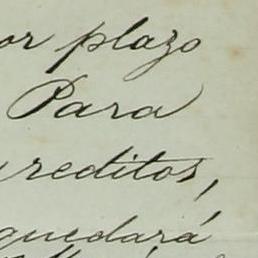 or plazo
Para
reditos,
quedará